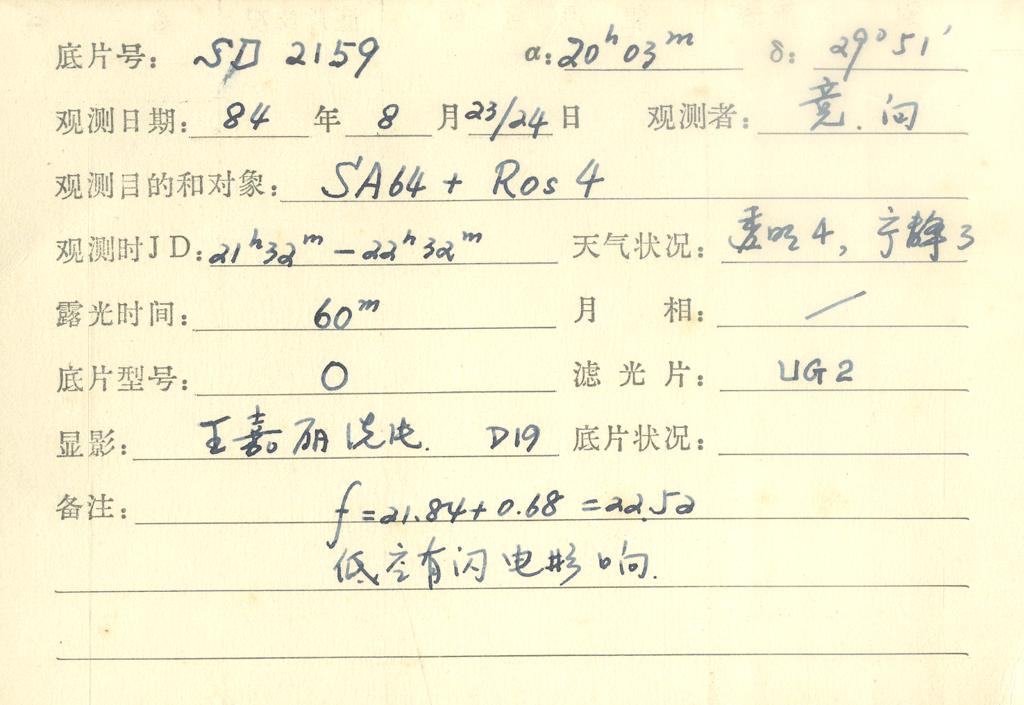 底片号: SD 2159 α: 20ʰ 03ᵐ δ: 29° 51′
观测日期: 84 年 8 月 23/24 日 观测者: 竞. 向
观测目的和对象: SA64 + Ros 4
观测时JD: 21ʰ32ᵐ — 22ʰ32ᵐ 天气状况: 透明 4, 宁静 3
露光时间: 60ᵐ 月 相: /
底片型号: O 滤光片: UG2
显影: 王嘉丽 D19 底片状况:
备注: f = 21.84 + 0.68 = 22.52
低空有闪电影响.